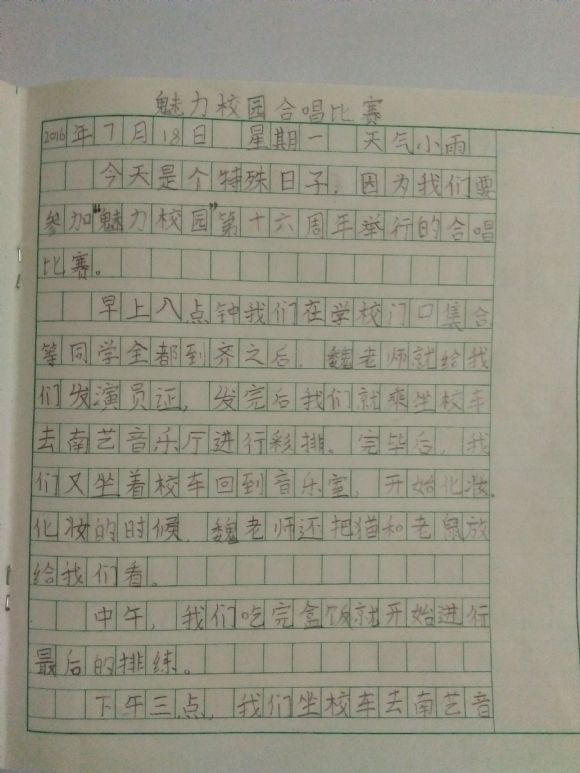 魅力校园合唱比赛
2016年7月18日 星期一 天气小雨
今天是个特殊日子，因为我们要
参加“魅力校园”第十六周年举行的合唱
比赛。
早上八点钟我们在学校门口集合
等同学全都到齐之后，魏老师就给我
们发演员证，发完后我们就乘坐校车
去南艺音乐厅进行彩排。完毕后，我
们又坐着校车回到音乐室，开始化妆。
化妆的时候，魏老师还把猫和老鼠放
给我们看。
中午，我们吃完盒饭就开始进行
最后的排练。
下午三点，我们坐校车去南艺音